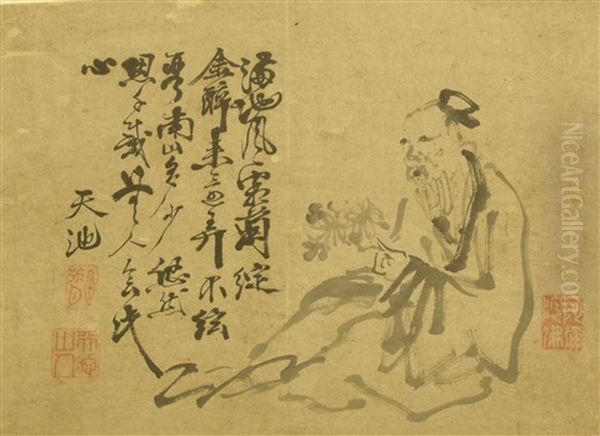 滿地風霜菊綻
金醉来還弄不絃
琴南山多少悠然
意千載無人會此
心
天池
NiceArtGallery.com